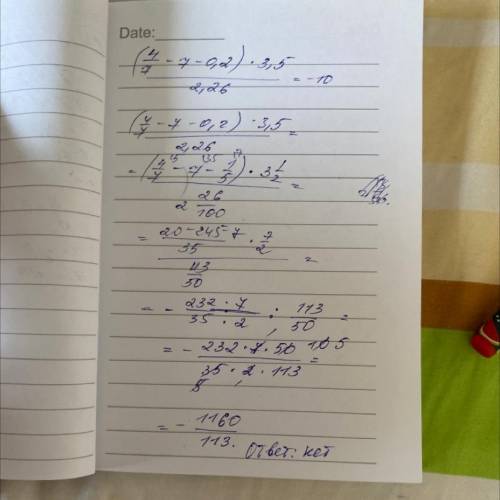 Date:
(4/7 - 7 - 0,2) · 3,5 / 2,26 = -10
(4/7 - 7 - 0,2) · 3,5 / 2,26 =
= (4/7 - 7 - 1/5) · 3 1/2 / 2 26/100 =
= 20-245-7 / 35 · 7/2 / 43/50 =
= - 232 · 7 / 35 · 2 : 113/50 =
= - 232 · 7 · 50 10 5 / 35 · 2 · 113 =
5
= - 1160/113.
Ответ: нет